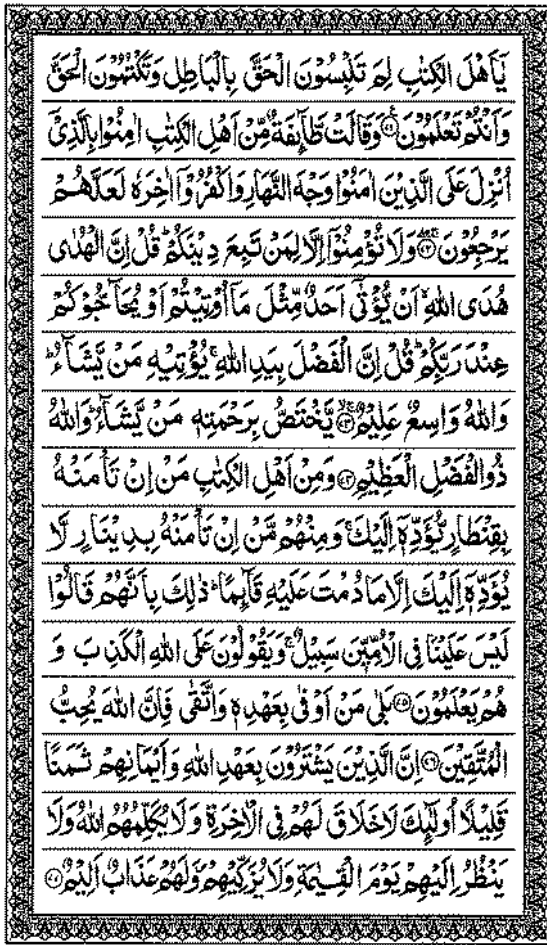 يٰٓاَهْلَ الْكِتٰبِ لِمَ تَلْبِسُوْنَ الْحَقَّ بِالْبَاطِلِ وَتَكْتُمُوْنَ الْحَقَّ
وَاَنْتُمْ تَعْلَمُوْنَ ﴿۷۱﴾ وَقَالَتْ طَّآئِفَةٌ مِّنْ اَهْلِ الْكِتٰبِ اٰمِنُوْا بِالَّذِيْۤ
اُنْزِلَ عَلَى الَّذِيْنَ اٰمَنُوْا وَجْهَ النَّهَارِ وَاكْفُرُوْۤا اٰخِرَهٗ لَعَلَّهُمْ
يَرْجِعُوْنَ ﴿۷۲﴾ وَلَا تُؤْمِنُوْۤا اِلَّا لِمَنْ تَبِعَ دِيْنَكُمْ ؕ قُلْ اِنَّ الْهُدٰى
هُدَى اللّٰهِ ۙ اَنْ يُّؤْتٰۤى اَحَدٌ مِّثْلَ مَاۤ اُوْتِيْتُمْ اَوْ يُحَآجُّوْكُمْ
عِنْدَ رَبِّكُمْ ؕ قُلْ اِنَّ الْفَضْلَ بِيَدِ اللّٰهِ ۚ يُؤْتِيْهِ مَنْ يَّشَآءُ ؕ
وَاللّٰهُ وَاسِعٌ عَلِيْمٌ ﴿۷۳﴾ يَّخْتَصُّ بِرَحْمَتِهٖ مَنْ يَّشَآءُ ؕ وَاللّٰهُ
ذُو الْفَضْلِ الْعَظِيْمِ ﴿۷۴﴾ وَمِنْ اَهْلِ الْكِتٰبِ مَنْ اِنْ تَاْمَنْهُ
بِقِنْطَارٍ يُّؤَدِّهٖۤ اِلَيْكَ ۚ وَمِنْهُمْ مَّنْ اِنْ تَاْمَنْهُ بِدِيْنَارٍ لَّا
يُؤَدِّهٖۤ اِلَيْكَ اِلَّا مَا دُمْتَ عَلَيْهِ قَآئِمًا ؕ ذٰلِكَ بِاَنَّهُمْ قَالُوْا
لَيْسَ عَلَيْنَا فِى الْاُمِّيّٖنَ سَبِيْلٌ ۚ وَيَقُوْلُوْنَ عَلَى اللّٰهِ الْكَذِبَ وَ
هُمْ يَعْلَمُوْنَ ﴿۷۵﴾ بَلٰى مَنْ اَوْفٰى بِعَهْدِهٖ وَاتَّقٰى فَاِنَّ اللّٰهَ يُحِبُّ
الْمُتَّقِيْنَ ﴿۷۶﴾ اِنَّ الَّذِيْنَ يَشْتَرُوْنَ بِعَهْدِ اللّٰهِ وَاَيْمَانِهِمْ ثَمَنًا
قَلِيْلًا اُولٰٓئِكَ لَا خَلَاقَ لَهُمْ فِى الْاٰخِرَةِ وَلَا يُكَلِّمُهُمُ اللّٰهُ وَلَا
يَنْظُرُ اِلَيْهِمْ يَوْمَ الْقِيٰمَةِ وَلَا يُزَكِّيْهِمْ ۪ وَلَهُمْ عَذَابٌ اَلِيْمٌ ﴿۷۷﴾